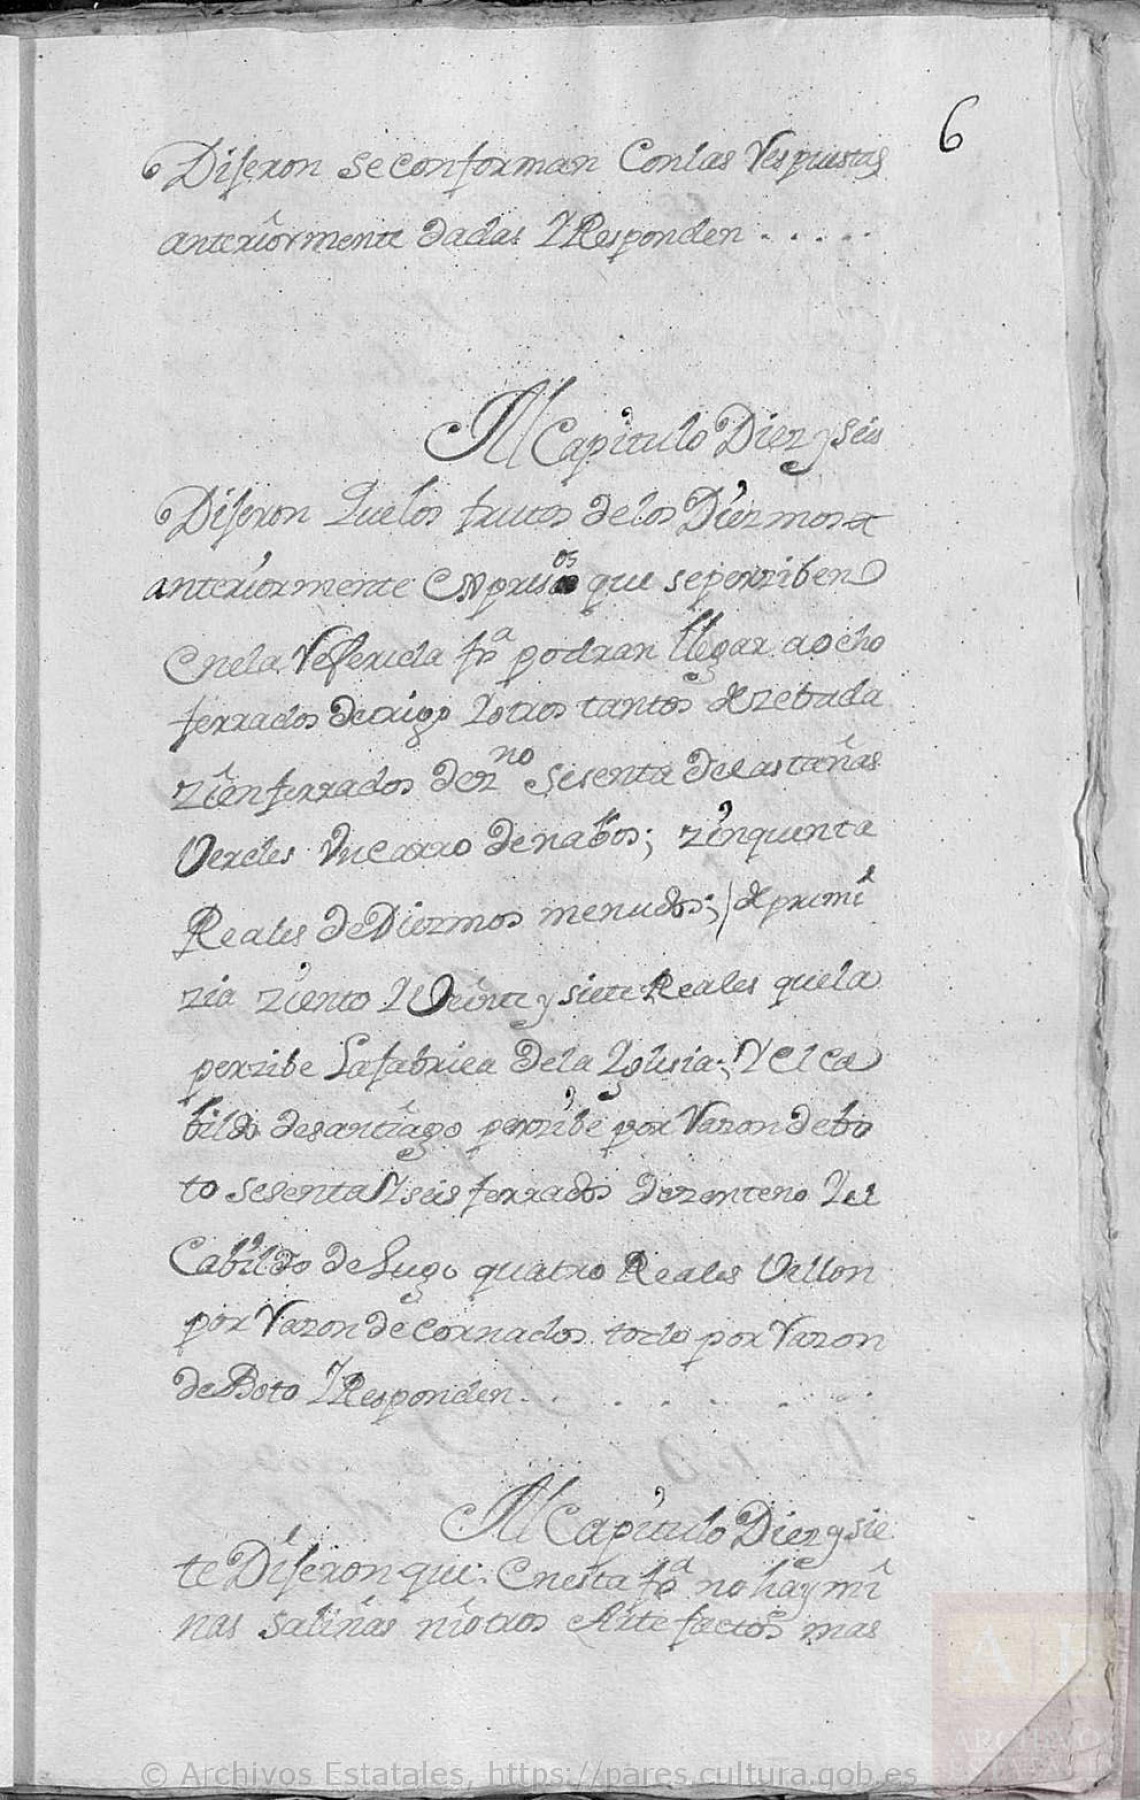 6
Diſeron Se conforman Con las Respuestas
anteriormente dadas Y Responden . . . . .
Al Capitulo Diez y Seis
Diſeron Que los frutos de los Diezmos
anteriormente Expresos que se perziben
En la Referida fª podran llegar a ocho
ferrados de trigo Y otros tantos de zebada
zien ferrados de zno Sesenta de Castañas
Verdes Un carro de nabos; zinquenta
Reales de Diezmos menudos; / de primi
zia ziento Y Veinte y siete Reales que la
perzibe La fabrica de la Yglesia; Y el ca
bildo de santiago perzibe por Razon de bo
to sesenta Y seis ferrados de zenteno Y el
Cabildo de Lugo quatro Reales Vellon
por Razon de cornados todo por Razon
de Boto Y Responden . . . . . . .
Al Capitulo Diez y sie
te Diſeron que En esta fª no hay mi
nas salinas ni otros Artefactos mas
© Archivos Estatales, https://pares.cultura.gob.es